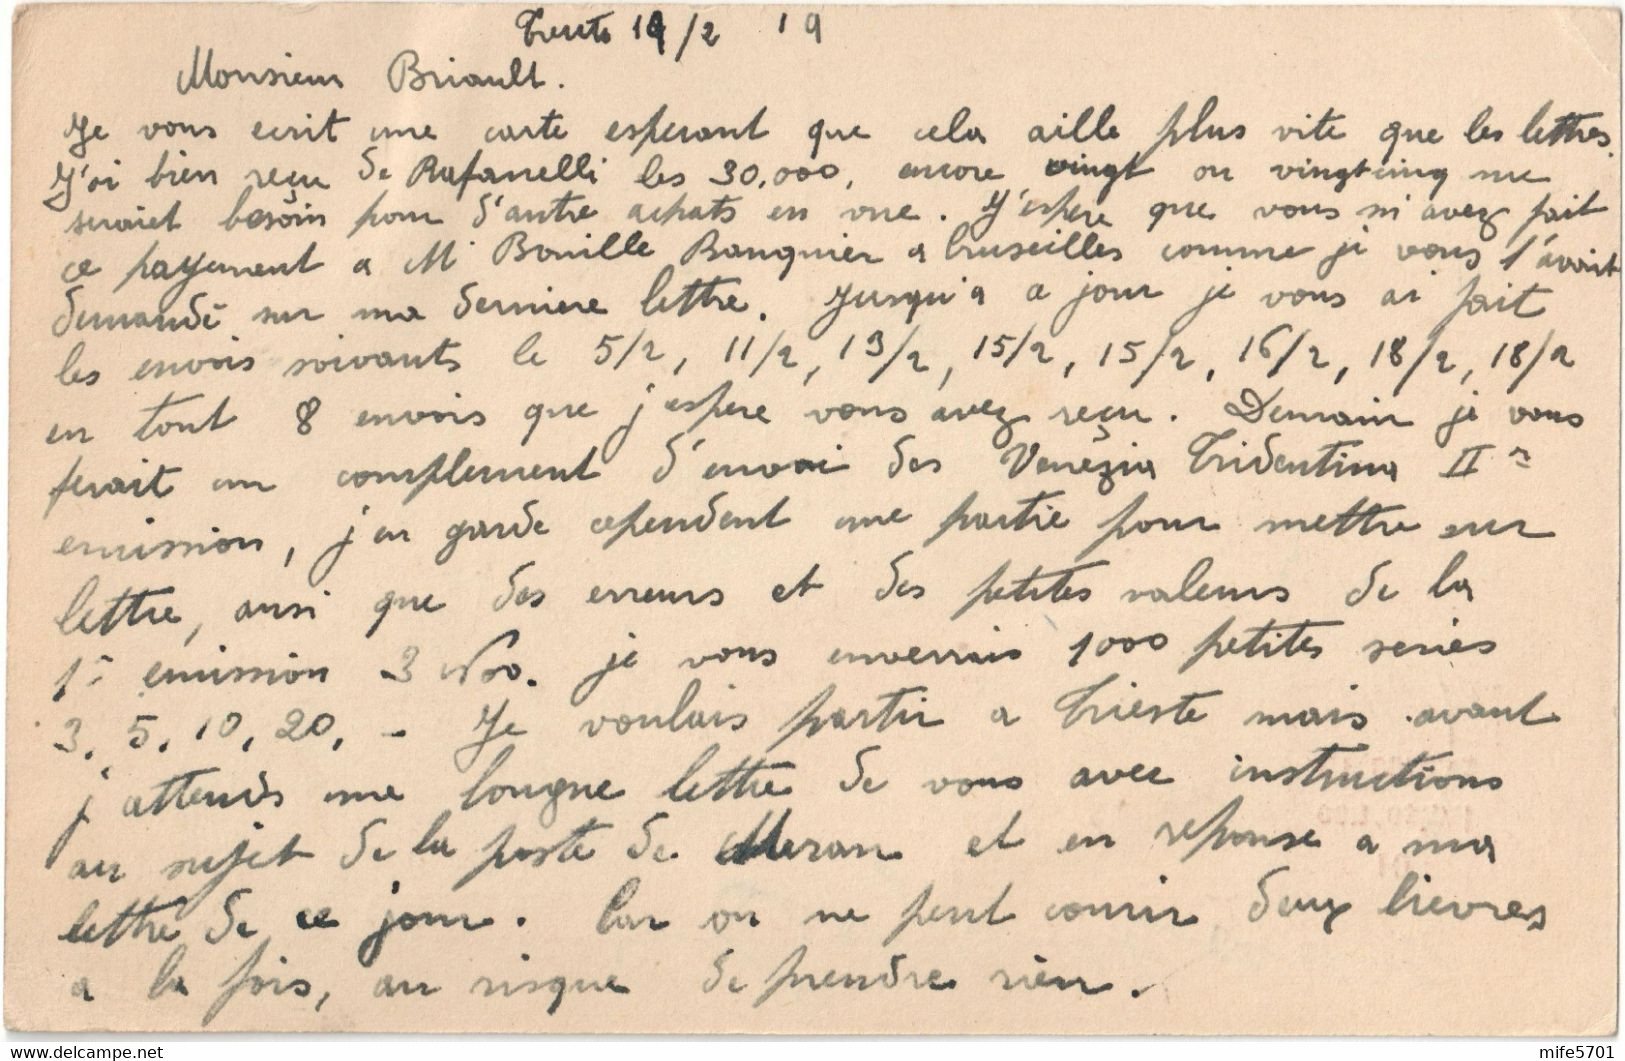 Trento 19/2 19
Monsieur Briault.
Je vous ecrit une carte esperant que cela aille plus vite que les lettres.
J'ai bien reçu de Rafanelli les 30.000, encore vingt ou vingtcinq me
seraiet besoin pour d'autre achats en vue. J'espere que vous m'avez fait
ce payement a Mr Bouille Banquier a bruseilles comme je vous l'avait
demandé sur ma derniere lettre. Jusqu'a a jour je vous ai fait
les envois soivants le 5/2, 11/2, 13/2, 15/2, 15/2, 16/2, 18/2, 18/2
en tout 8 envois que j'espere vous avez reçu. Demain je vous
ferait un complement d'envoi des Venezia Tridentina IIe
emission, j'en garde cependent une partie pour mettre sur
lettre, ausi que des erreurs et des petites valeurs de la
1e emission 3 Nos. je vous enverrais 1000 petites series
3, 5, 10, 20, - Je voulais partir a Trieste mais avant
j'attends une longue lettre de vous avec instructions
au sujet de la poste de Meran et en reponse a ma
lettre de ce jour. Car on ne peut courir deux lievres
a la fois, au risque de prendre rien.
mife5701